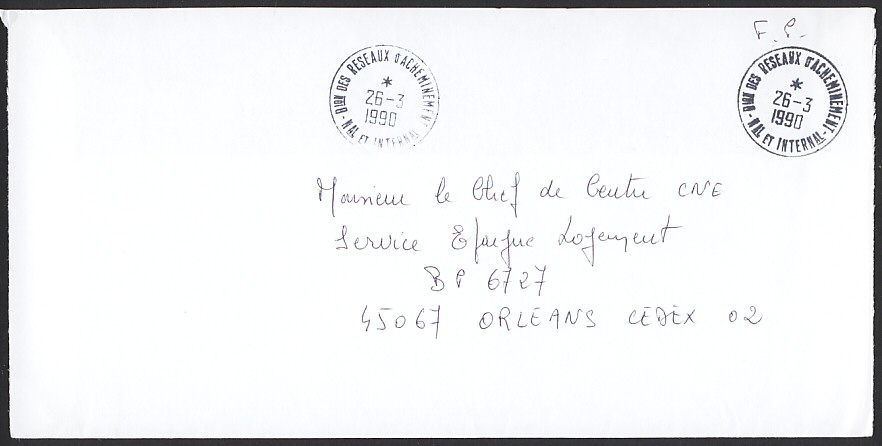 F.P.
DION DES RESEAUX D'ACHEMINEMENT
*
26-3
1990
- NAL ET INTERNAL -
DION DES RESEAUX D'ACHEMINEMENT
*
26-3
1990
- NAL ET INTERNAL -
Monsieur le Chef de Centre CNE
Service Epargne Logement
BP 6727
45067 ORLEANS CEDEX 02